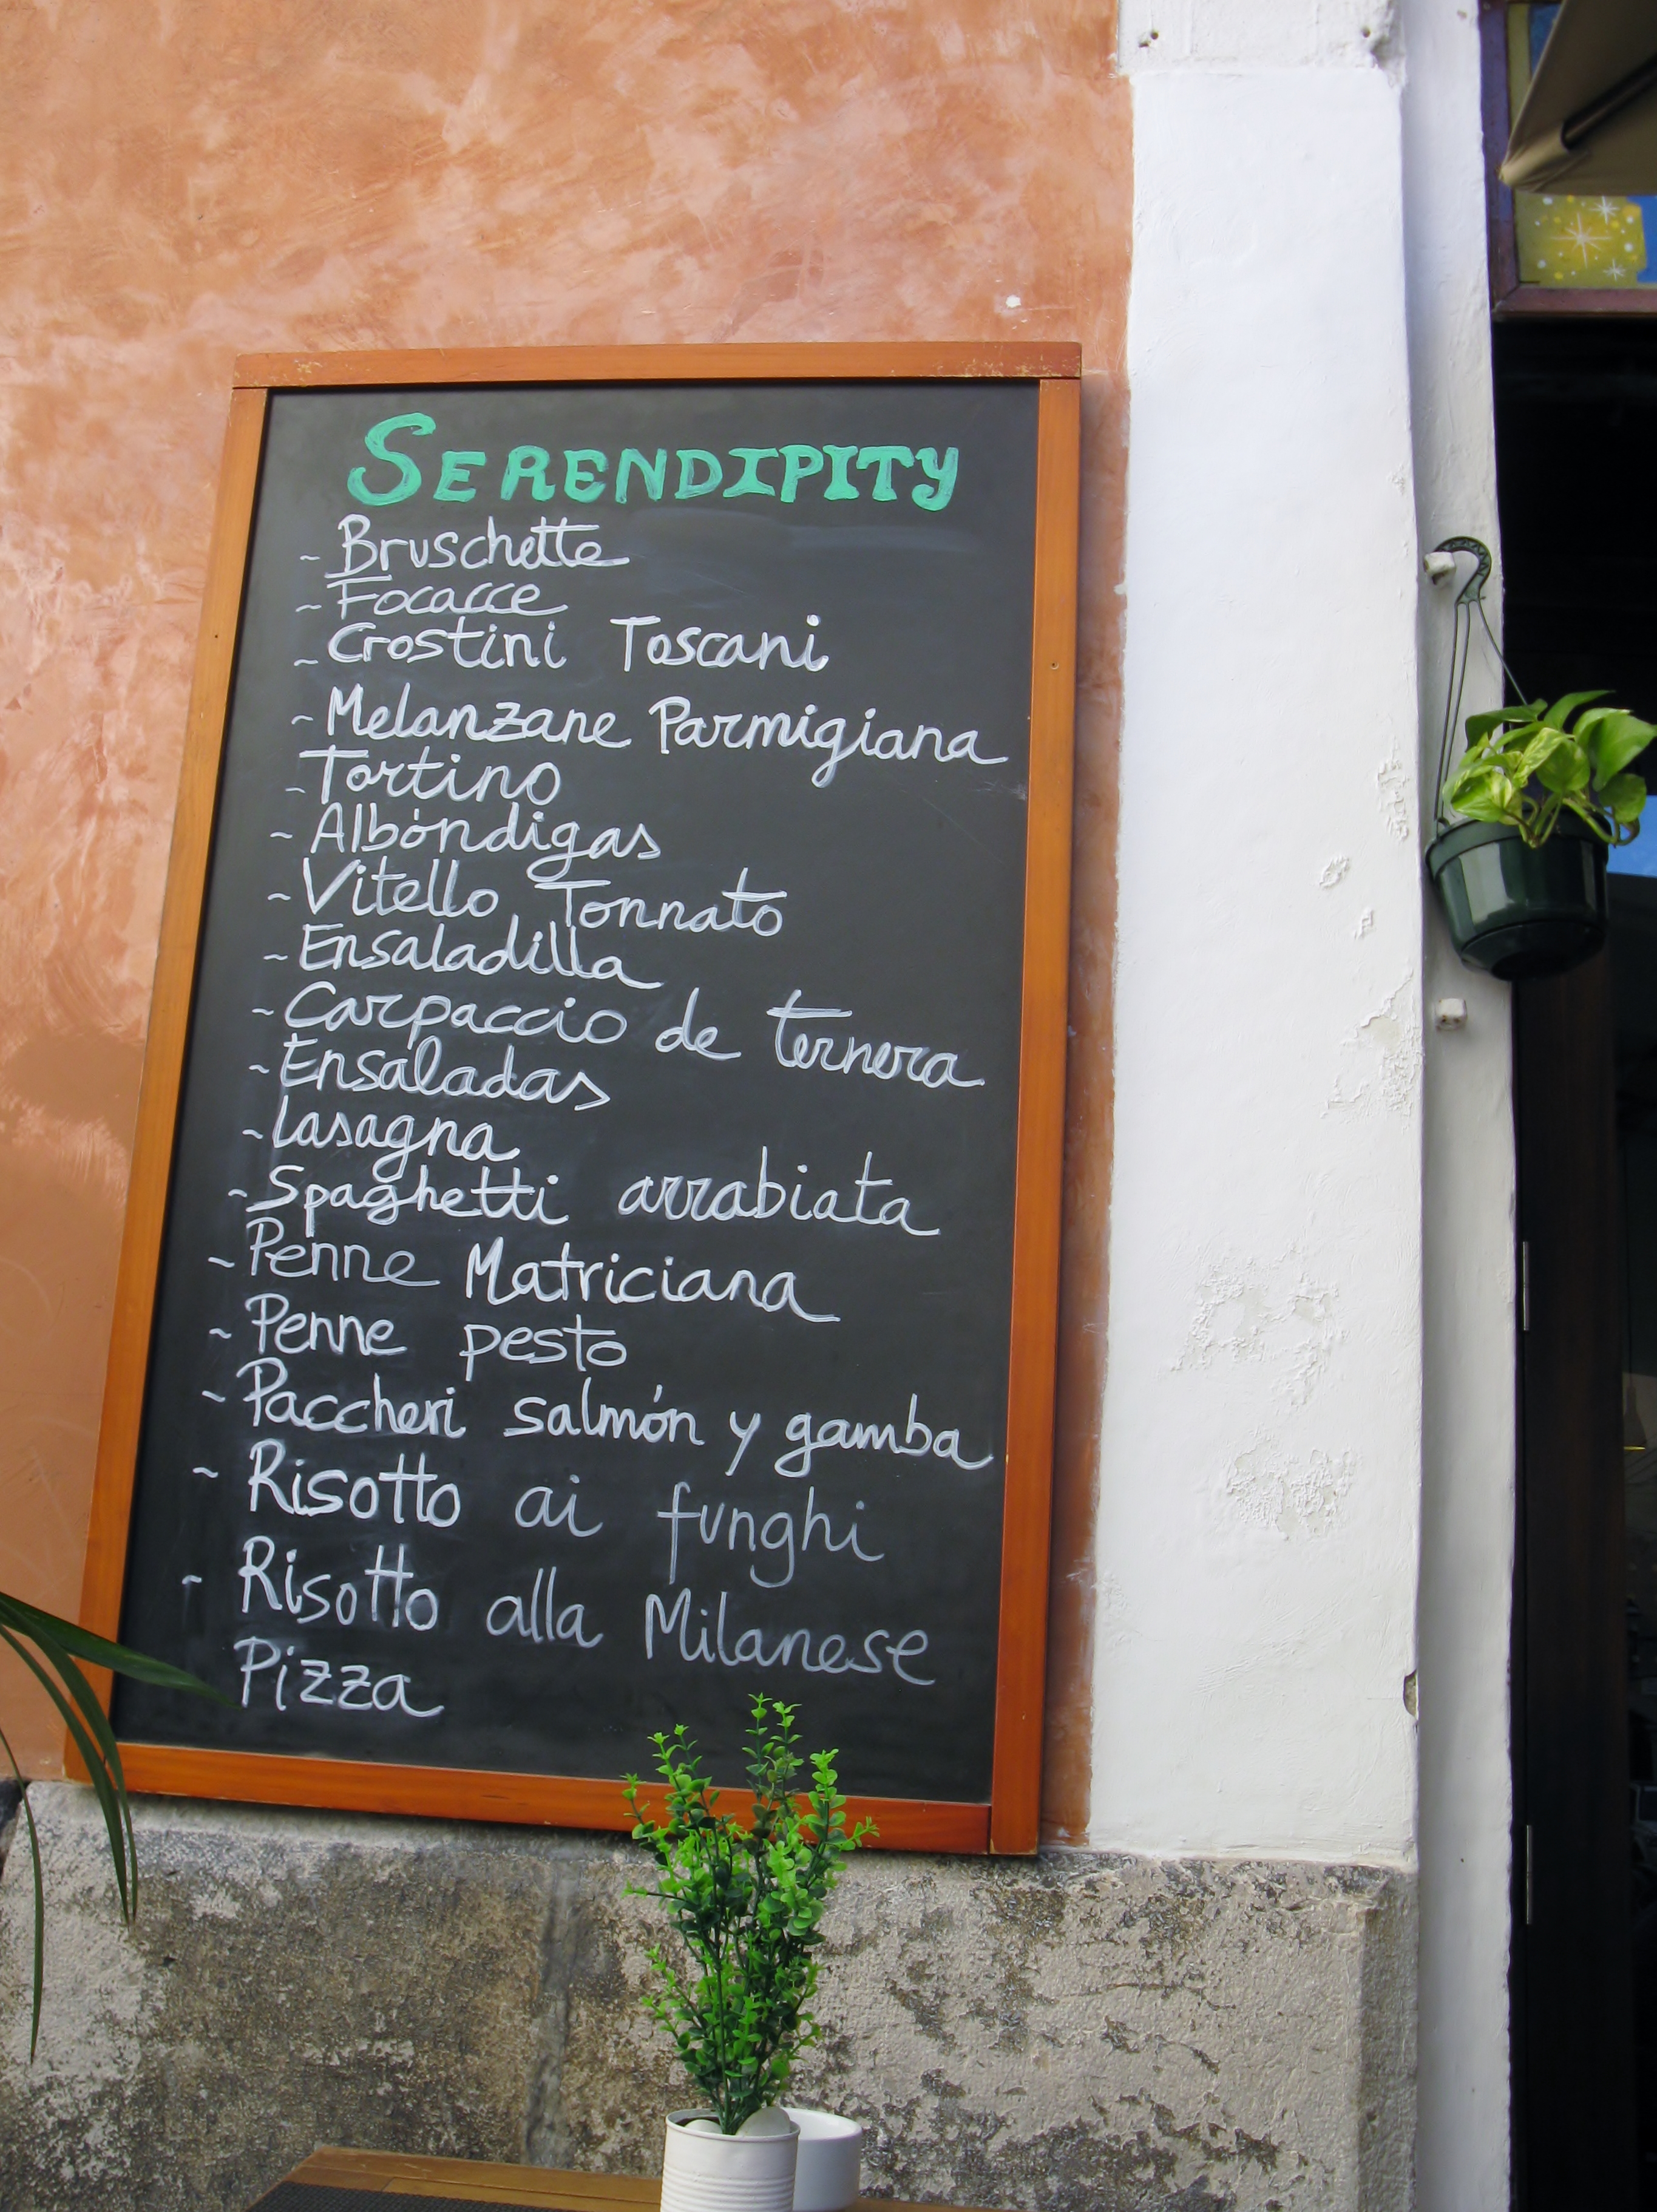 SERENDIPITY
~ Bruschette
~ Focacce
~ Crostini Toscani
~ Melanzane Parmigiana
~ Tortino
~ Albóndigas
~ Vitello Tonnato
~ Ensaladilla
~ Carpaccio de ternera
~ Ensaladas
~ Lasagna
~ Spaghetti arrabiata
~ Penne Matriciana
~ Penne pesto
~ Paccheri salmón y gamba
~ Risotto ai funghi
~ Risotto alla Milanese
Pizza